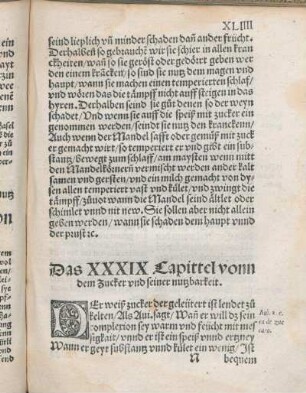 XLIIII
seind lieplich vñ minder schaden dañ ander frücht.
Derhalben so gebraucht wir sie schier in allen kran
ckheiten/ wañ so sie geröst oder gedörrt geben wer
den einem kräcken/ so sind sie nutz dem magen vnd
haupt/ wann sie machen einen temperierten schlaf/
vnd wören das die dämpff nicht auff steigen in das
hyren. Derhalben seind sie gůt denen so der weyn
schadet/ Vnd wenn sie auff die speiß mit zucker ein
genommen werden/ seind sie nutz den krancken/
Auch wenn der Mandel safft oder gemüß mit zuck
er gemacht wirt/ so temperiert er vnd gibt ein sub/
stantz/ bewegt zum schlaff/ am maysten wenn mitt
den Mandelkönern vermischt werden ander kalt
samen vnd gersten/ vnd ein milch gemacht von dy/
sen allen temperiert vast vnd kület/ vnd zwingt die
tämpff/ zůuor wann die Mandel seind ältlet oder
schimlet vnnd nit new. Sie sollen aber nicht allein
geben werden/ wann sie schaden dem haupt vnnd
der prust ⁊c.
Das XXXIX Capittel vonn
dem Zucker vnd seiner nutzbarkeit.
DEr weiß zucker der geleütert ist lendet zů
kelten. Als Aui. sagt/ Wañ er will dz sein
complexion sey warm vnd feücht mit mes
sigkait/ vnnd er ist ein speiß vnnd ertzney
Wann er geyt substantz vnnd kület ein wenig/ Ist
N bequem